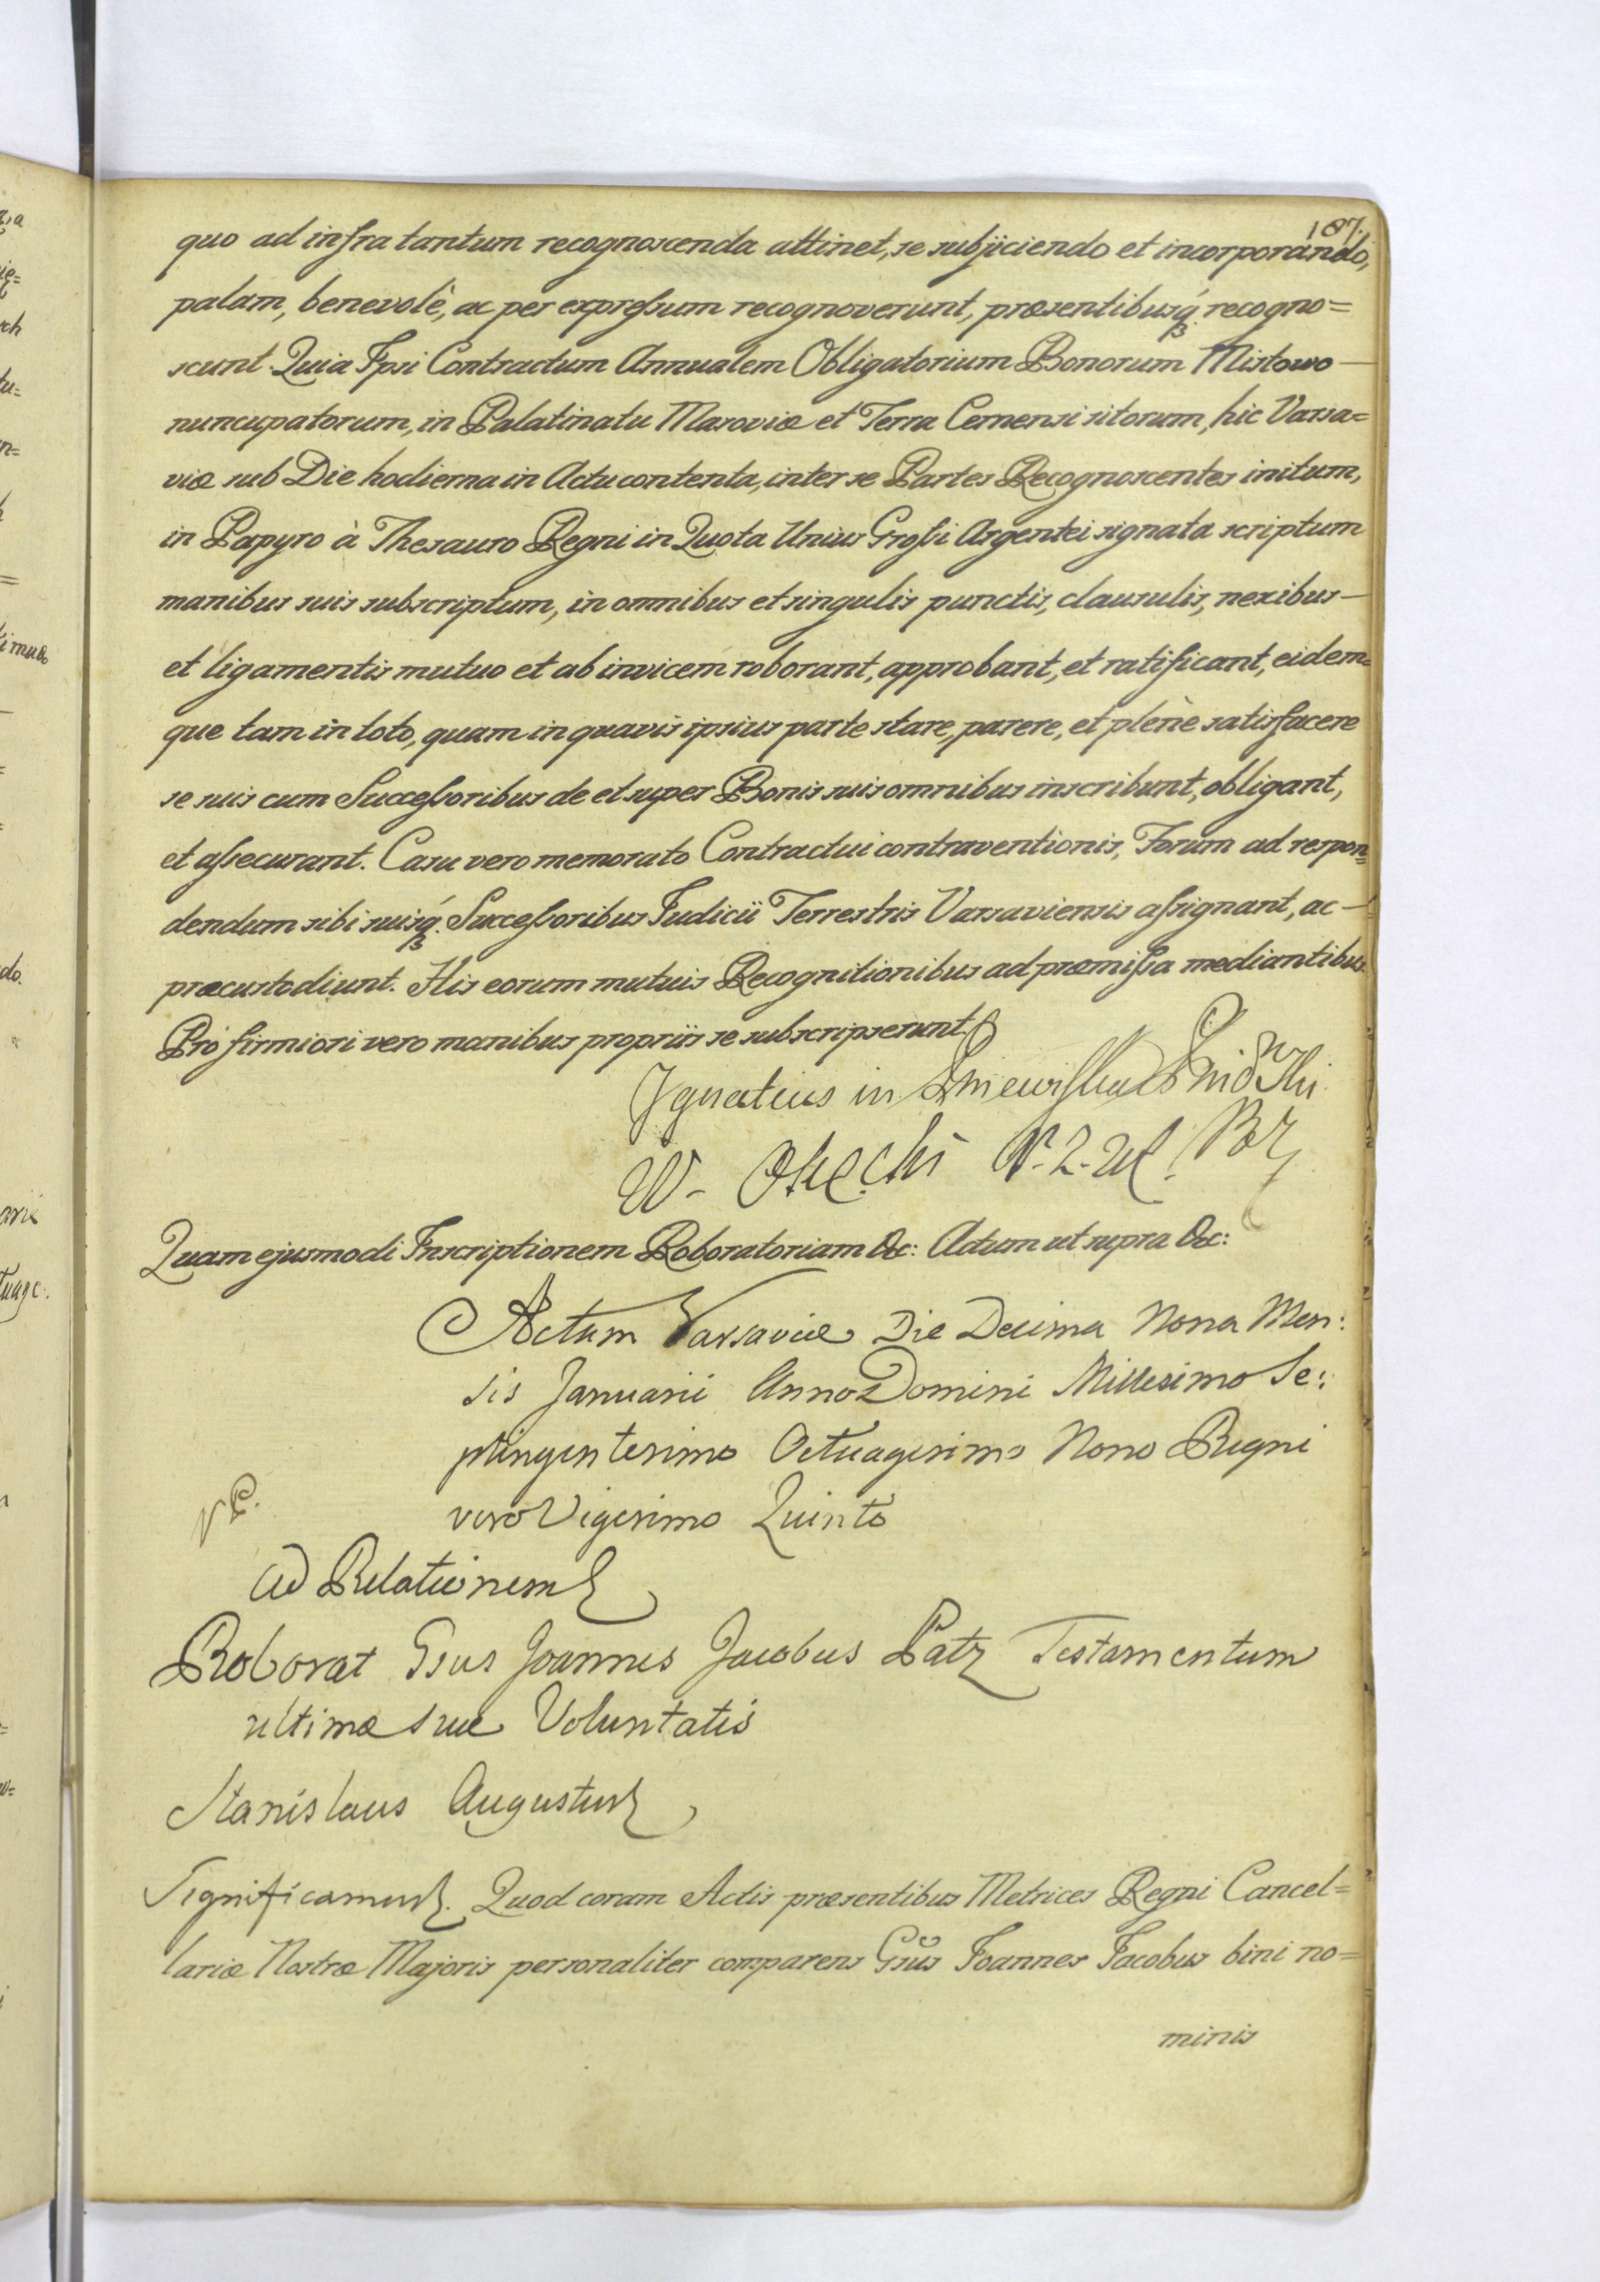 187.
quo ad infra tantum recognoscenda attinet, se subjiciendo et incorporando,
palam, benevolè, ac per expreſsum recognoverunt, præsentibusq́ꝫ recogno=
scunt. Quia Ipsi Contractum Annualem Obligatorium Bonorum Mistowo —
nuncupatorum, in Palatinatu Masoviæ et Terra Cernensi sitorum, hic Varsa=
viæ sub Die hodierna in Actu contenta, inter se Partes Recognoscentes initum,
in Papyro à Thesauro Regni in Quota Unius Groſsi Argentei signata scriptum
manibus suis subscriptum, in omnibus et singulis punctis, clausulis, nexibus —
et ligamentis mutuo et ab invicem roborant, approbant, et ratificant, eidem=
que tam in toto, quam in quavis ipsius parte stare, parere, et plenè satisfacere
se suis cum Succeſsoribus de et super Bonis suis omnibus inscribunt, obligant,
et aſsecurant. Casu vero memorato Contractui contraventionis, Forum ad respon=
dendum sibi suisq́ꝫ Succeſsoribus Judicii Terrestris Varsaviensis aſsignant, ac —
præcustodiunt. His eorum mutuis Recognitionibus ad præmiſsa mediantibus.
Pro firmiori vero manibus propriis se subscripserunt
Ignatius in
W.
Quam ejusmodi Inscriptionem Roboratoriam &c: Actum ut supra &c:
Actum Varsaviæ Die Decima Nona Men:
sis Januarii Anno Domini Millesimo Se:
ptingentesimo Octuagesimo Nono Regni
vero Vigesimo Quinto
Ad Relationem
Roborat Gsus Joannes Jacobus Patz Testamentum
ultimæ suæ Voluntatis
Stanislaus Augustus
Significamus. Quod coram Actis præsentibus Metrices Regni Cancel=
lariæ Nostræ Majoris personaliter comparens Gsus Joannes Jacobus bini no=
minis